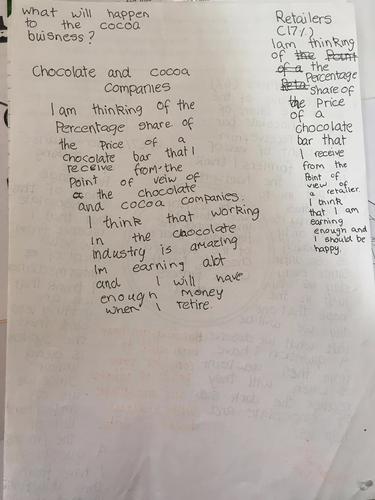 what will happen
to the cocoa
buisness?
Chocolate and cocoa
companies
I am thinking of the
Percentage share of
the Price of a
chocolate bar that I
receive from the
Point of veiw of
the chocolate
and cocoa companies.
I think that working
in the chocolate
industry is amazing
Im earning alot
and I will have
enough money
when I retire.
Retailers
(17%)
I am thinking
of the Point
of a the
Percentage
share of
the Price
of a
chocolate
bar that
I receive
from the
Point of
view of
a retailer.
I think
that I am
earning
enough and
I should be
happy.